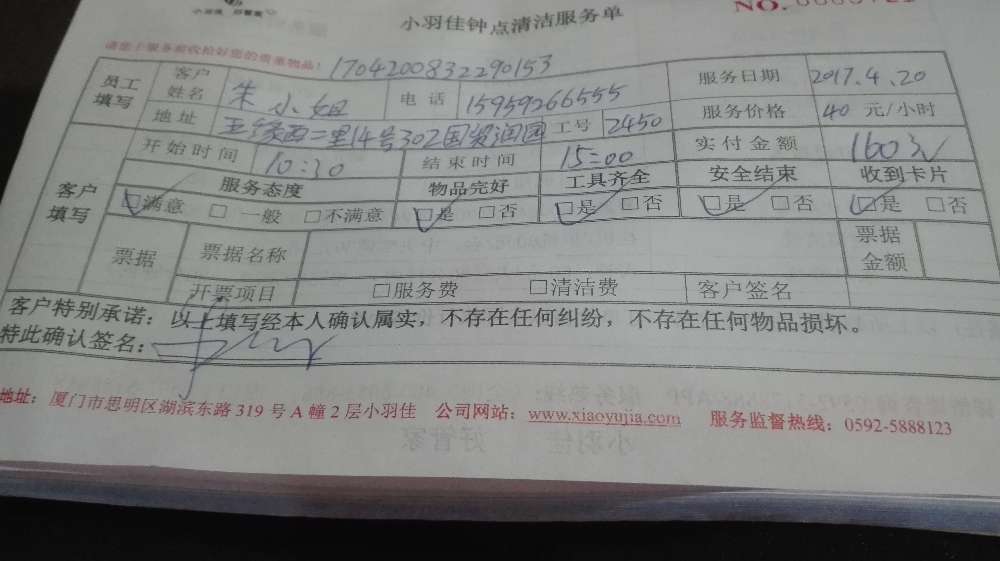 小羽佳 好管家
小羽佳钟点清洁服务单
NO.
请您于服务前收拾好您的贵重物品!
1704200832290153
员工填写 客户姓名 朱小姐 电话 15959266555 服务日期 2017.4.20
地址 二里14号302国贸润园 工号 2450 服务价格 40 元/小时
客户填写 开始时间 10:30 结束时间 15:00 实付金额 160元
服务态度 物品完好 工具齐全 安全结束 收到卡片
☑满意 □一般 □不满意 ☑是 □否 ☑是 □否 ☑是 □否 ☑是 □否
票据 票据名称 票据金额
开票项目 □服务费 □清洁费 客户签名
客户特别承诺：以上填写经本人确认属实，不存在任何纠纷，不存在任何物品损坏。
特此确认签名：
地址：厦门市思明区湖滨东路 319 号 A 幢 2 层小羽佳 公司网站：www.xiaoyujia.com 服务监督热线：0592-5888123